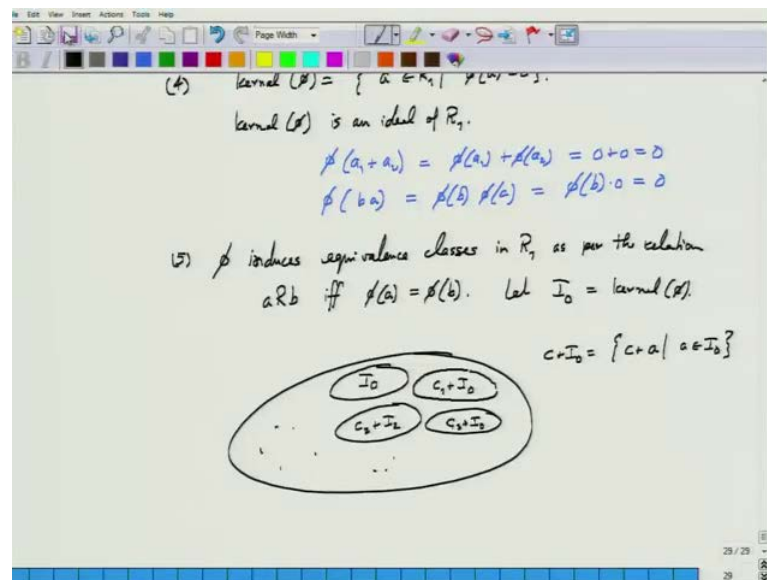 File Edit View Insert Actions Tools Help
Page Width
(4) kernel (φ) = { a ∈ R₁ | φ(a) = 0 }.
kernel (φ) is an ideal of R₁.
φ(a₁ + a₂) = φ(a₁) + φ(a₂) = 0+0 = 0
φ(ba) = φ(b) φ(a) = φ(b)·0 = 0
(5) φ induces equivalence classes in R₁ as per the relation
aRb iff φ(a) = φ(b). Let I₀ = kernel (φ).
c+I₀ = { c+a | a ∈ I₀ }
I₀ C₁+I₀
C₂+I₂ C₃+I₀
29 / 29
29